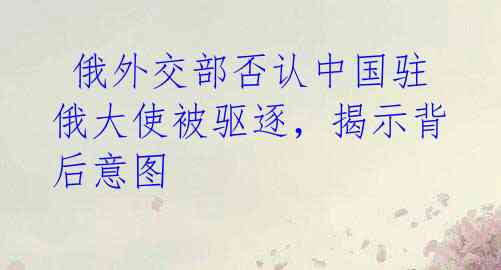 俄外交部否认中国驻
俄大使被驱逐，揭示背
后意图